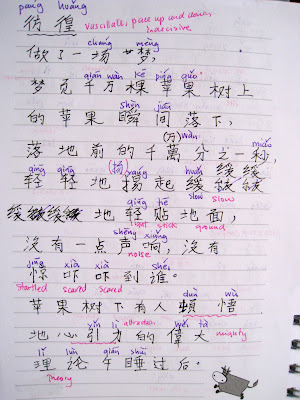 pang huáng
彷徨 vascillate, pace up and down, indecisive
chǎng mèng
做了一场梦,
qiān wàn kē píng guǒ
梦见千万棵苹果树上
shùn jiān
的苹果瞬间落下,
(万) wàn miǎo
落地前的千萬分之一秒,
qīng qīng (扬) yáng huǎn
轻轻地揚起缓缓
slow slow
地轻贴地面,
light stick ground
shēng xiǎng
没有一点声响,没有
noise
jīng xià xià shéi
惊吓吓到谁。
startled scared scared
dùn wù
苹果树下有人頓悟
xīn lì attraction wěi dà
地心引力的偉大 mighty
lǐ lùn shuì
理论午睡过后。
Theory